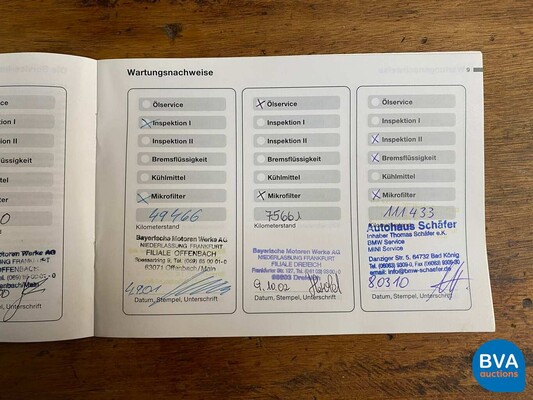 Wartungsnachweise
9
Ölservice
Inspektion I
Inspektion II
Bremsflüssigkeit
Kühlmittel
Mikrofilter
49466
Kilometerstand
Bayerische Motoren Werke AG
NIEDERLASSUNG FRANKFURT
FILIALE OFFENBACH
63071 Offenbach/Main
Datum, Stempel, Unterschrift
Ölservice
Inspektion I
Inspektion II
Bremsflüssigkeit
Kühlmittel
Mikrofilter
75661
Kilometerstand
Bayerische Motoren Werke AG
NIEDERLASSUNG FRANKFURT
FILIALE DREIEICH
63303 Dreieich
9.10.02
Datum, Stempel, Unterschrift
Ölservice
Inspektion I
Inspektion II
Bremsflüssigkeit
Kühlmittel
Mikrofilter
111433
Autohaus Schäfer
Inhaber Thomas Schäfer e.K.
BMW Service
MINI Service
Danziger Str. 5, 64732 Bad König
email: info@bmw-schaefer.de
80310
Datum, Stempel, Unterschrift
BVA
auctions